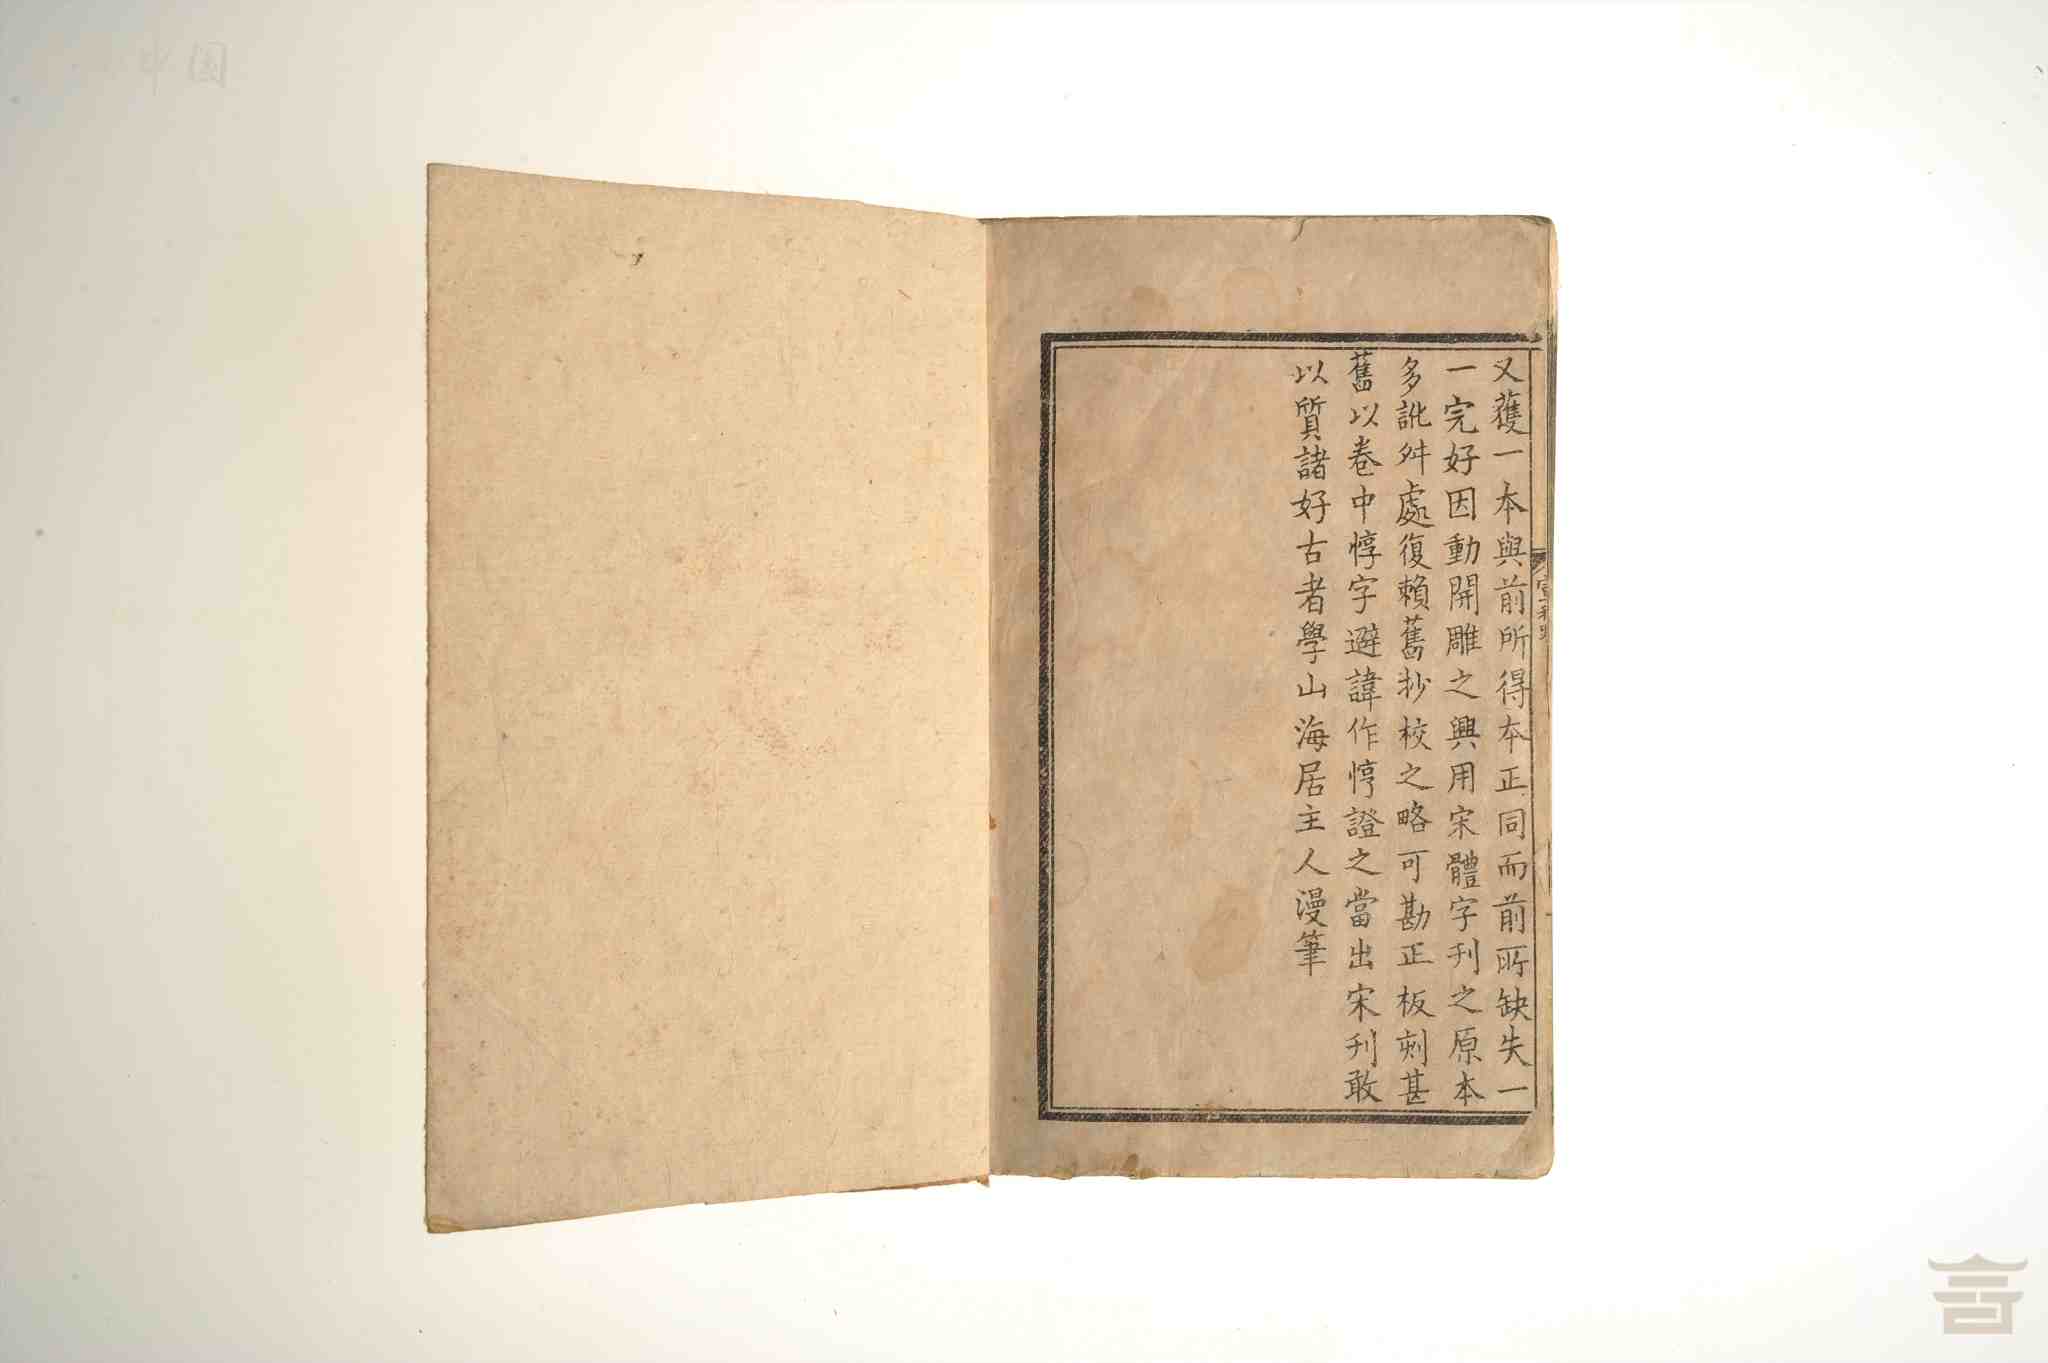 又獲一本與前所得本正同而前所缺失一
一完好因動開雕之興用宋體字刊之原本
多訛舛處復賴舊抄校之略可勘正板刻甚
舊以卷中惇字避諱作惇證之當出宋刊敢
以質諸好古者學山海居主人漫筆
中国